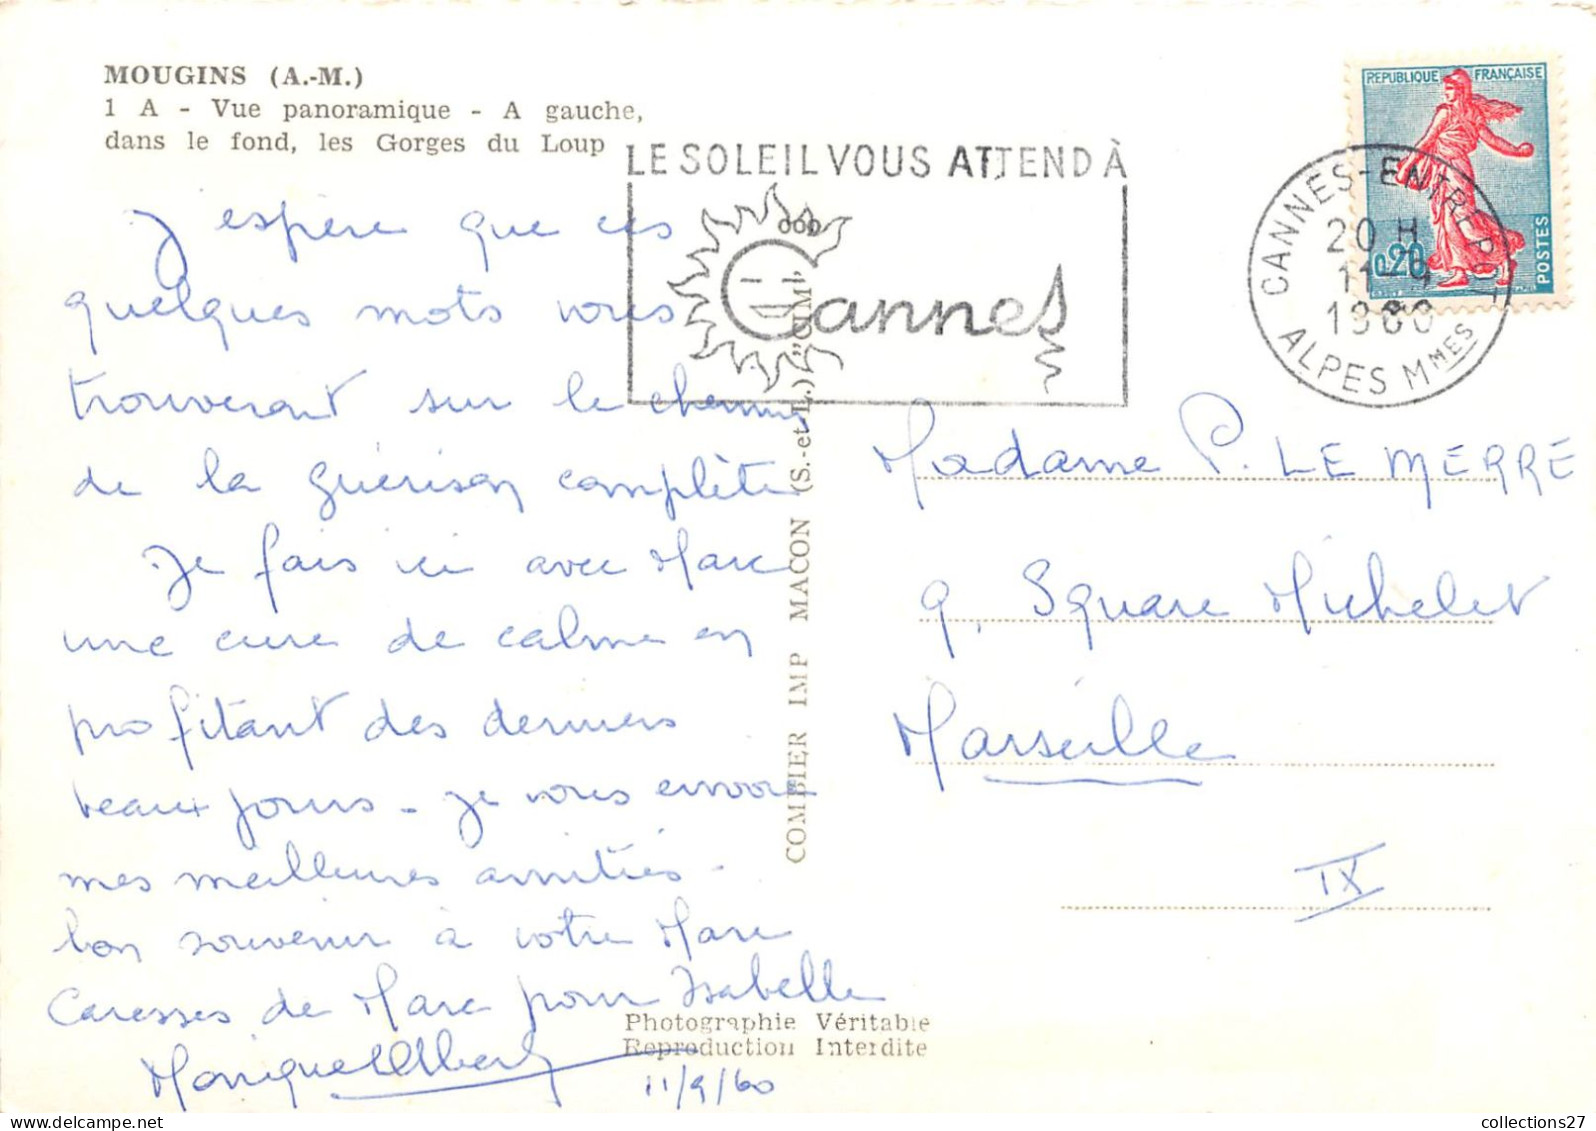 MOUGINS (A.-M.)
1 A - Vue panoramique - A gauche,
dans le fond, les Gorges du Loup
LE SOLEIL VOUS ATTEND À
Cannes
REPUBLIQUE FRANÇAISE
0,20
POSTES
CANNES-ENTREPOT
20 H
11-9
1960
ALPES MMES
J'espère que ces
quelques mots vous
trouveront sur le chemin
de la guérison complète
Je fais ici avec Marc
une cure de calme en
profitant des derniers
beaux jours - Je vous envoie
mes meilleures amitiés -
bon souvenir à votre Marc
Caresses de Marc pour Isabelle
Monique Albert
11/9/60
COMBIER IMP MACON (S.-et-L.) "CIM"
Madame P. LE MERRE
9, Square Michelet
Marseille
IX
Photographie Véritable
Reproduction Interdite
collections27